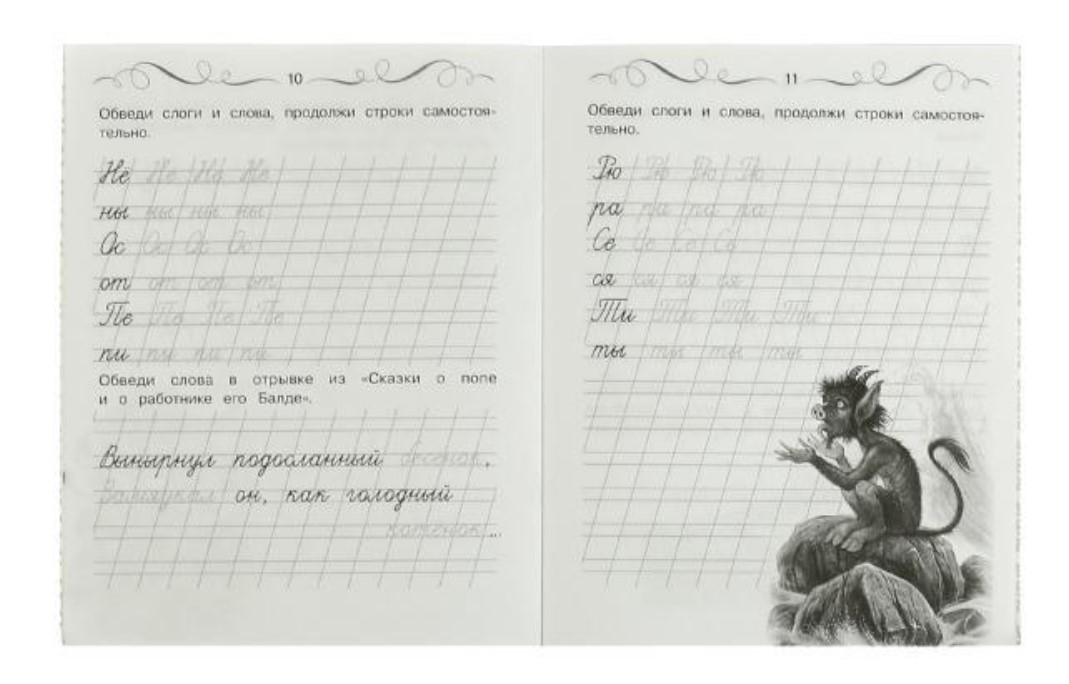 10
Обведи слоги и слова, продолжи строки самостоя-
тельно.
Не Не Не Не
ны ны ны ны
Ос Ос Ос Ос
от от от от
Пе Пе Пе Пе
пи пи пи пи
Обведи слова в отрывке из «Сказки о попе
и о работнике его Балде».
Вынырнул подосланный бесенок,
Замяукал он, как голодный
котенок...
11
Обведи слоги и слова, продолжи строки самостоя-
тельно.
Рю Рю Рю Рю
ра ра ра ра
Се Се Се Се
ся ся ся ся
Ти Ти Ти Ти
ты ты ты ты